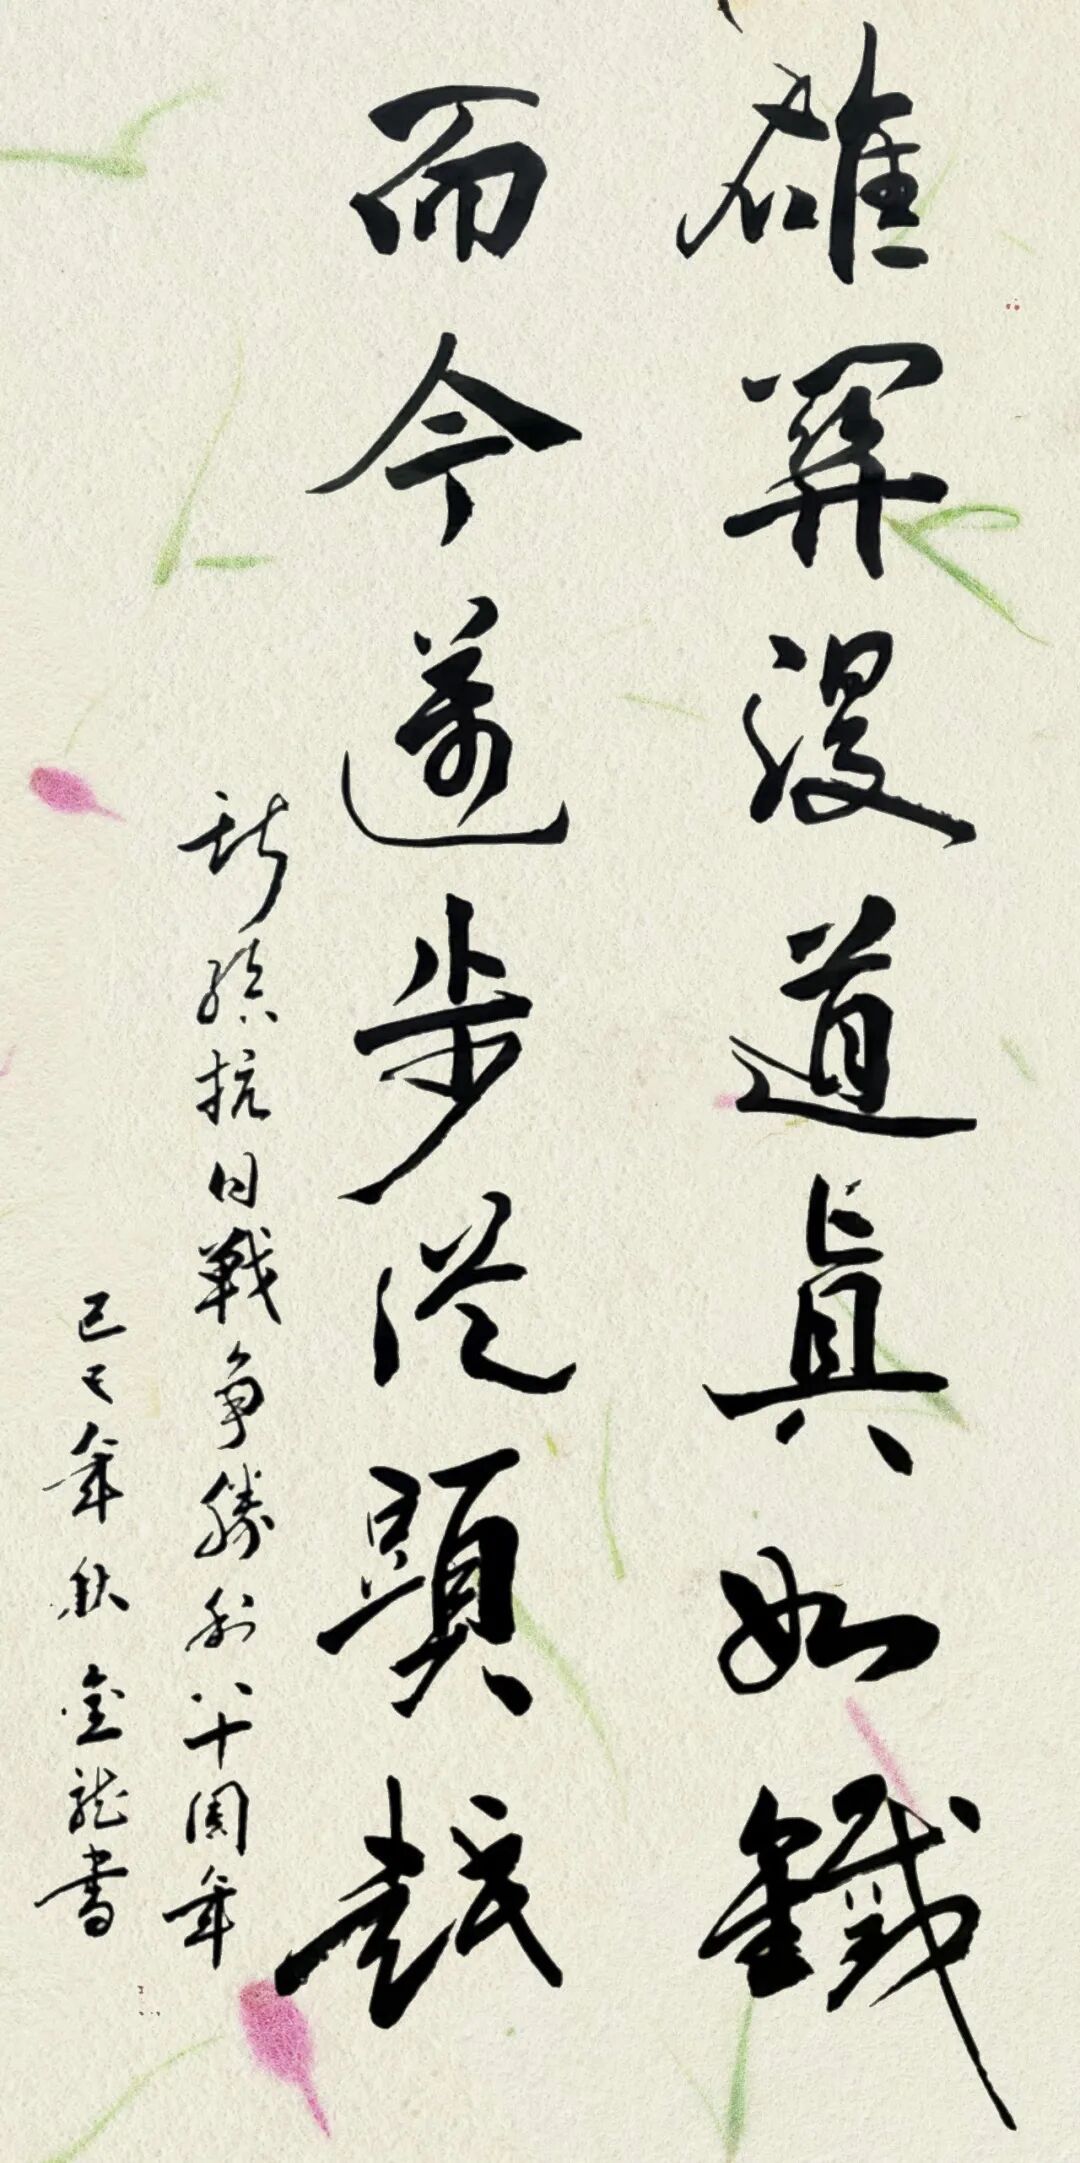 雄關漫道真如鐵
而今邁步從頭越
抗日戰争勝利八十周年
年秋金龍書